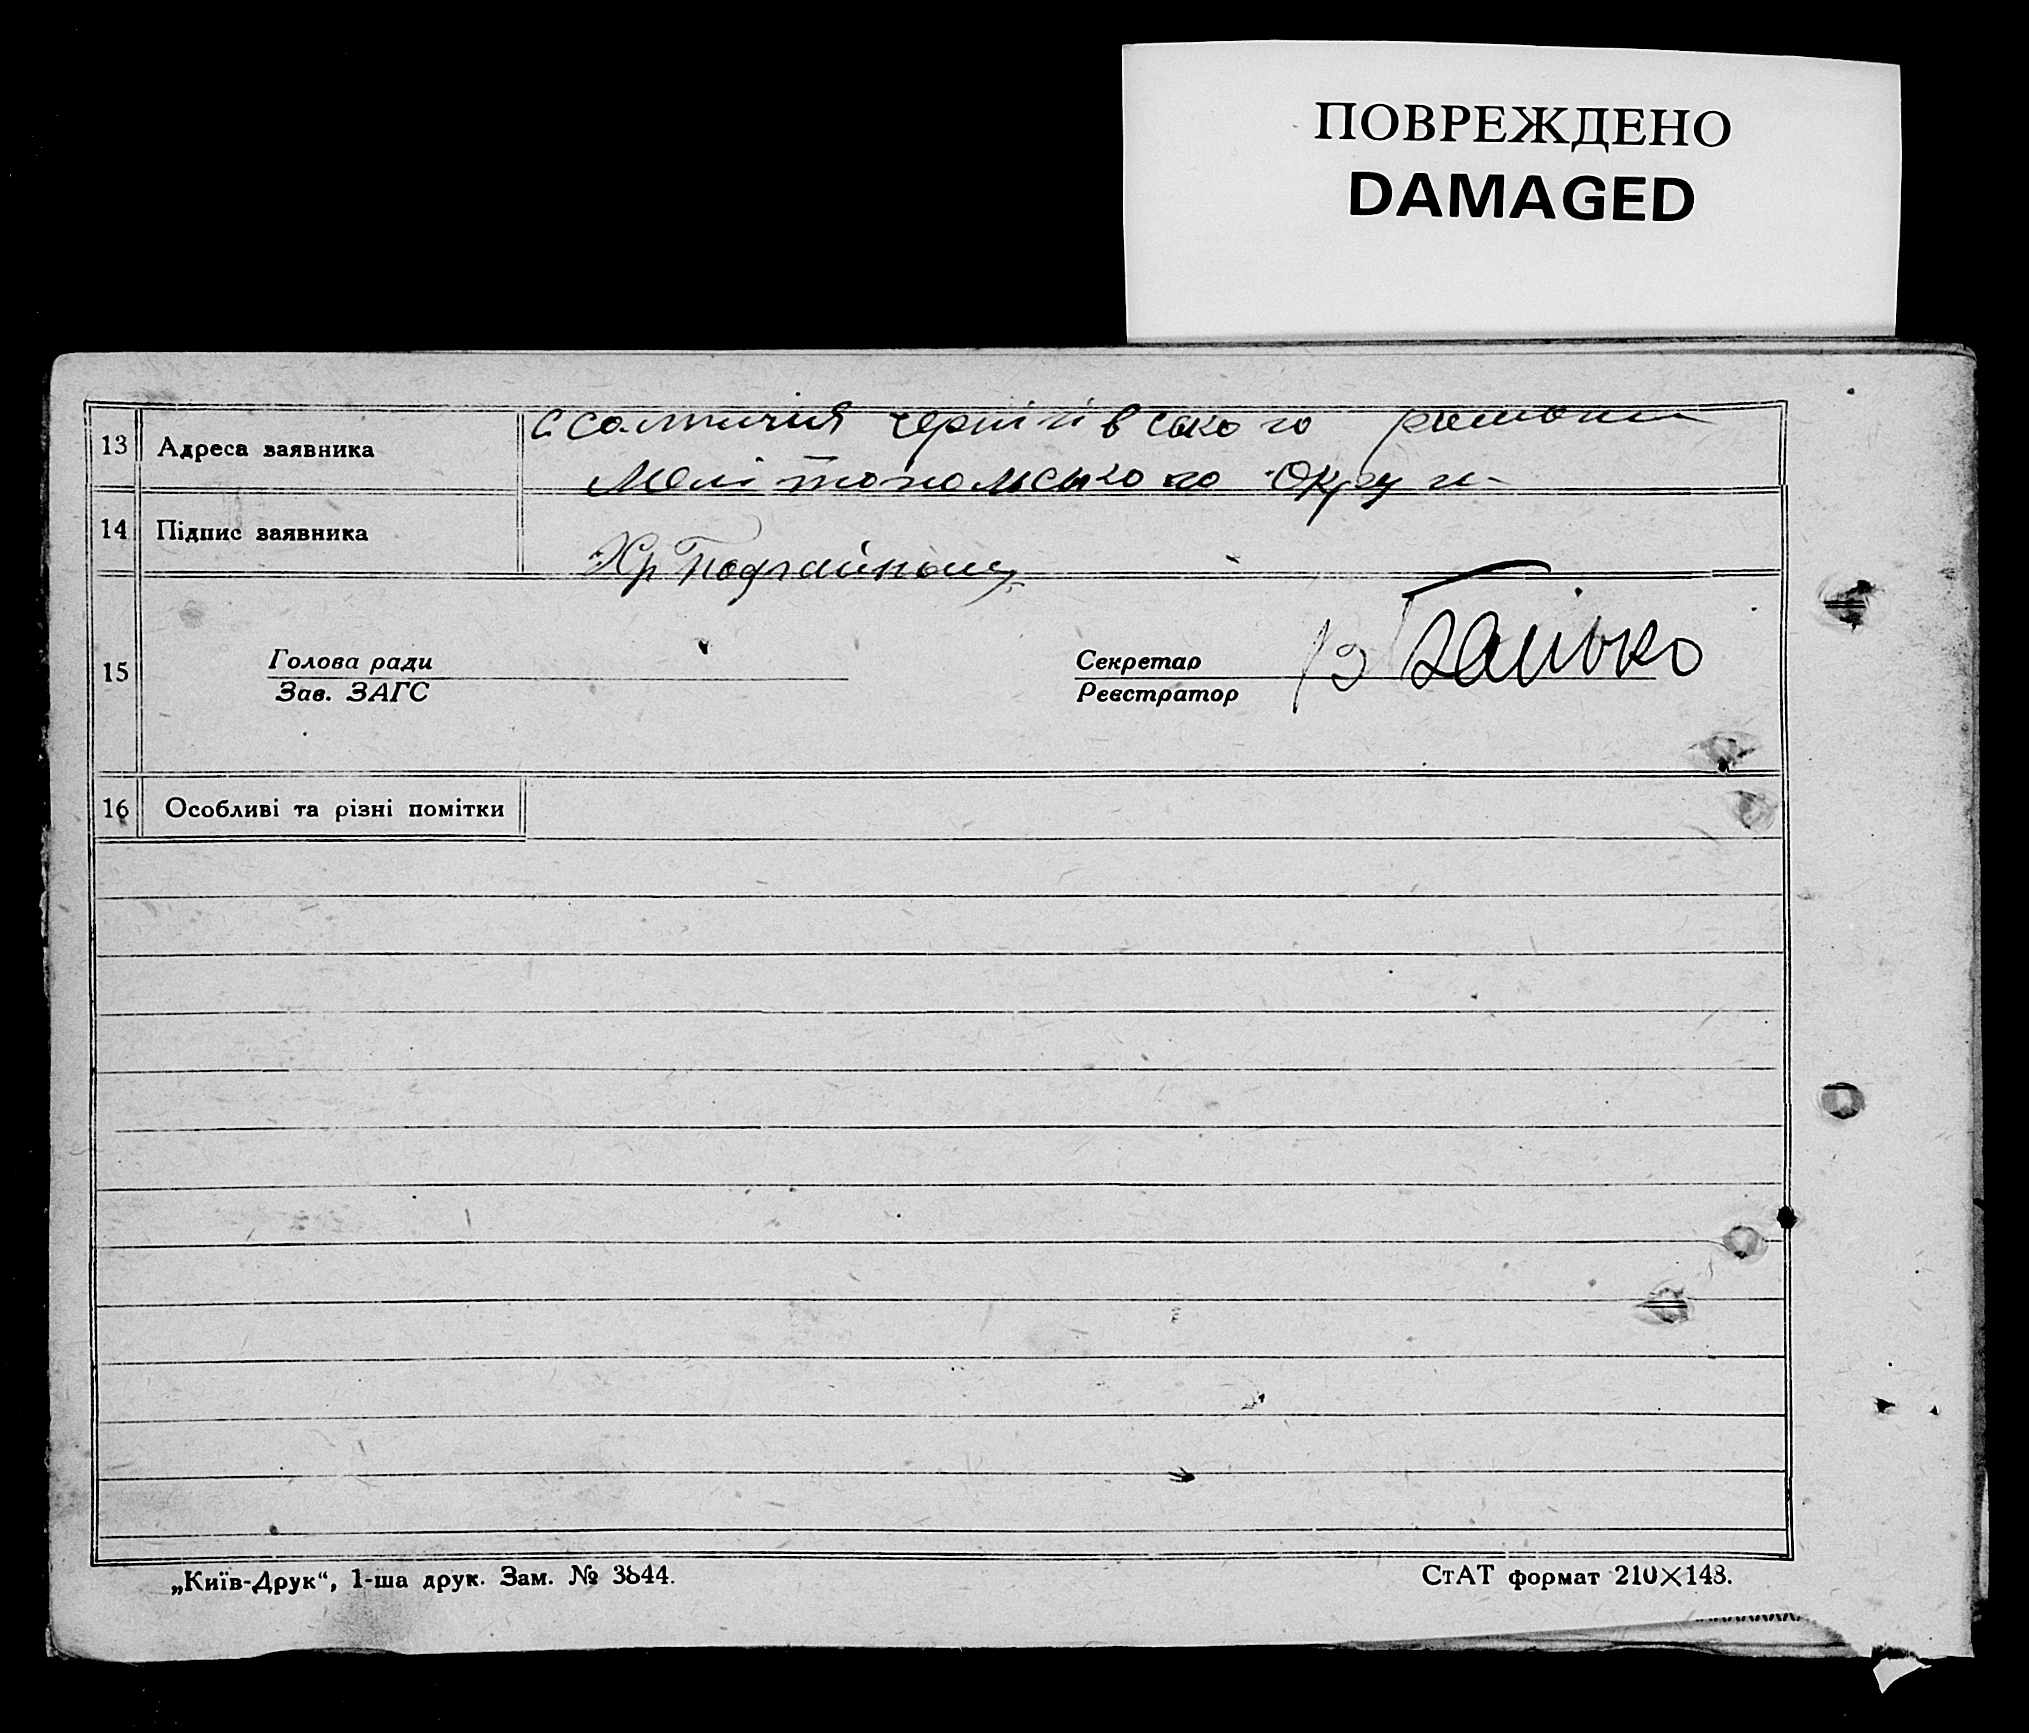 ПОВРЕЖДЕНО
DAMAGED
13 Адреса заявника с Салтичия Чернігівського району
Мелітопольського Округи
14 Підпис заявника Хр
15 Голова ради
Зав. ЗАГС
Секретар
Реєстратор
16 Особливі та різні помітки
„Київ-Друк“, 1-ша друк. Зам. № 3844.
СтАТ формат 210×148.